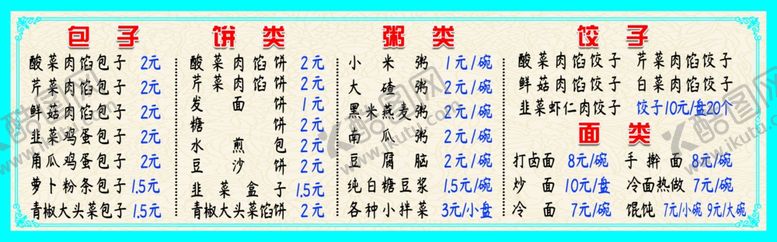 包子
酸菜肉馅包子 2元
芹菜肉馅包子 2元
鲜菇肉馅包子 2元
韭菜鸡蛋包子 2元
角瓜鸡蛋包子 2元
萝卜粉条包子 1.5元
青椒大头菜包子 2元
饼类
酸菜肉馅饼 2元
芹菜肉馅饼 2元
发面饼 1元
糖饼 2元
水煎包 2元
豆沙饼 2元
韭菜盒子 1.5元
青椒大头菜馅饼 2元
粥类
小米粥 1元/碗
大碴粥 2元/碗
黑米燕麦粥 2元/碗
南瓜粥 2元/碗
豆腐脑 2元/碗
纯白糖豆浆 1.5元/碗
各种小拌菜 3元/小盘
饺子
酸菜肉馅饺子 芹菜肉馅饺子
鲜菇肉馅饺子 白菜肉馅饺子
韭菜虾仁肉饺子 饺子10元/盘20个
面类
打卤面 8元/碗 手擀面 8元/碗
炒面 10元/盘 冷面热做 7元/碗
冷面 7元/碗 馄饨 7元/小碗 9元/大碗